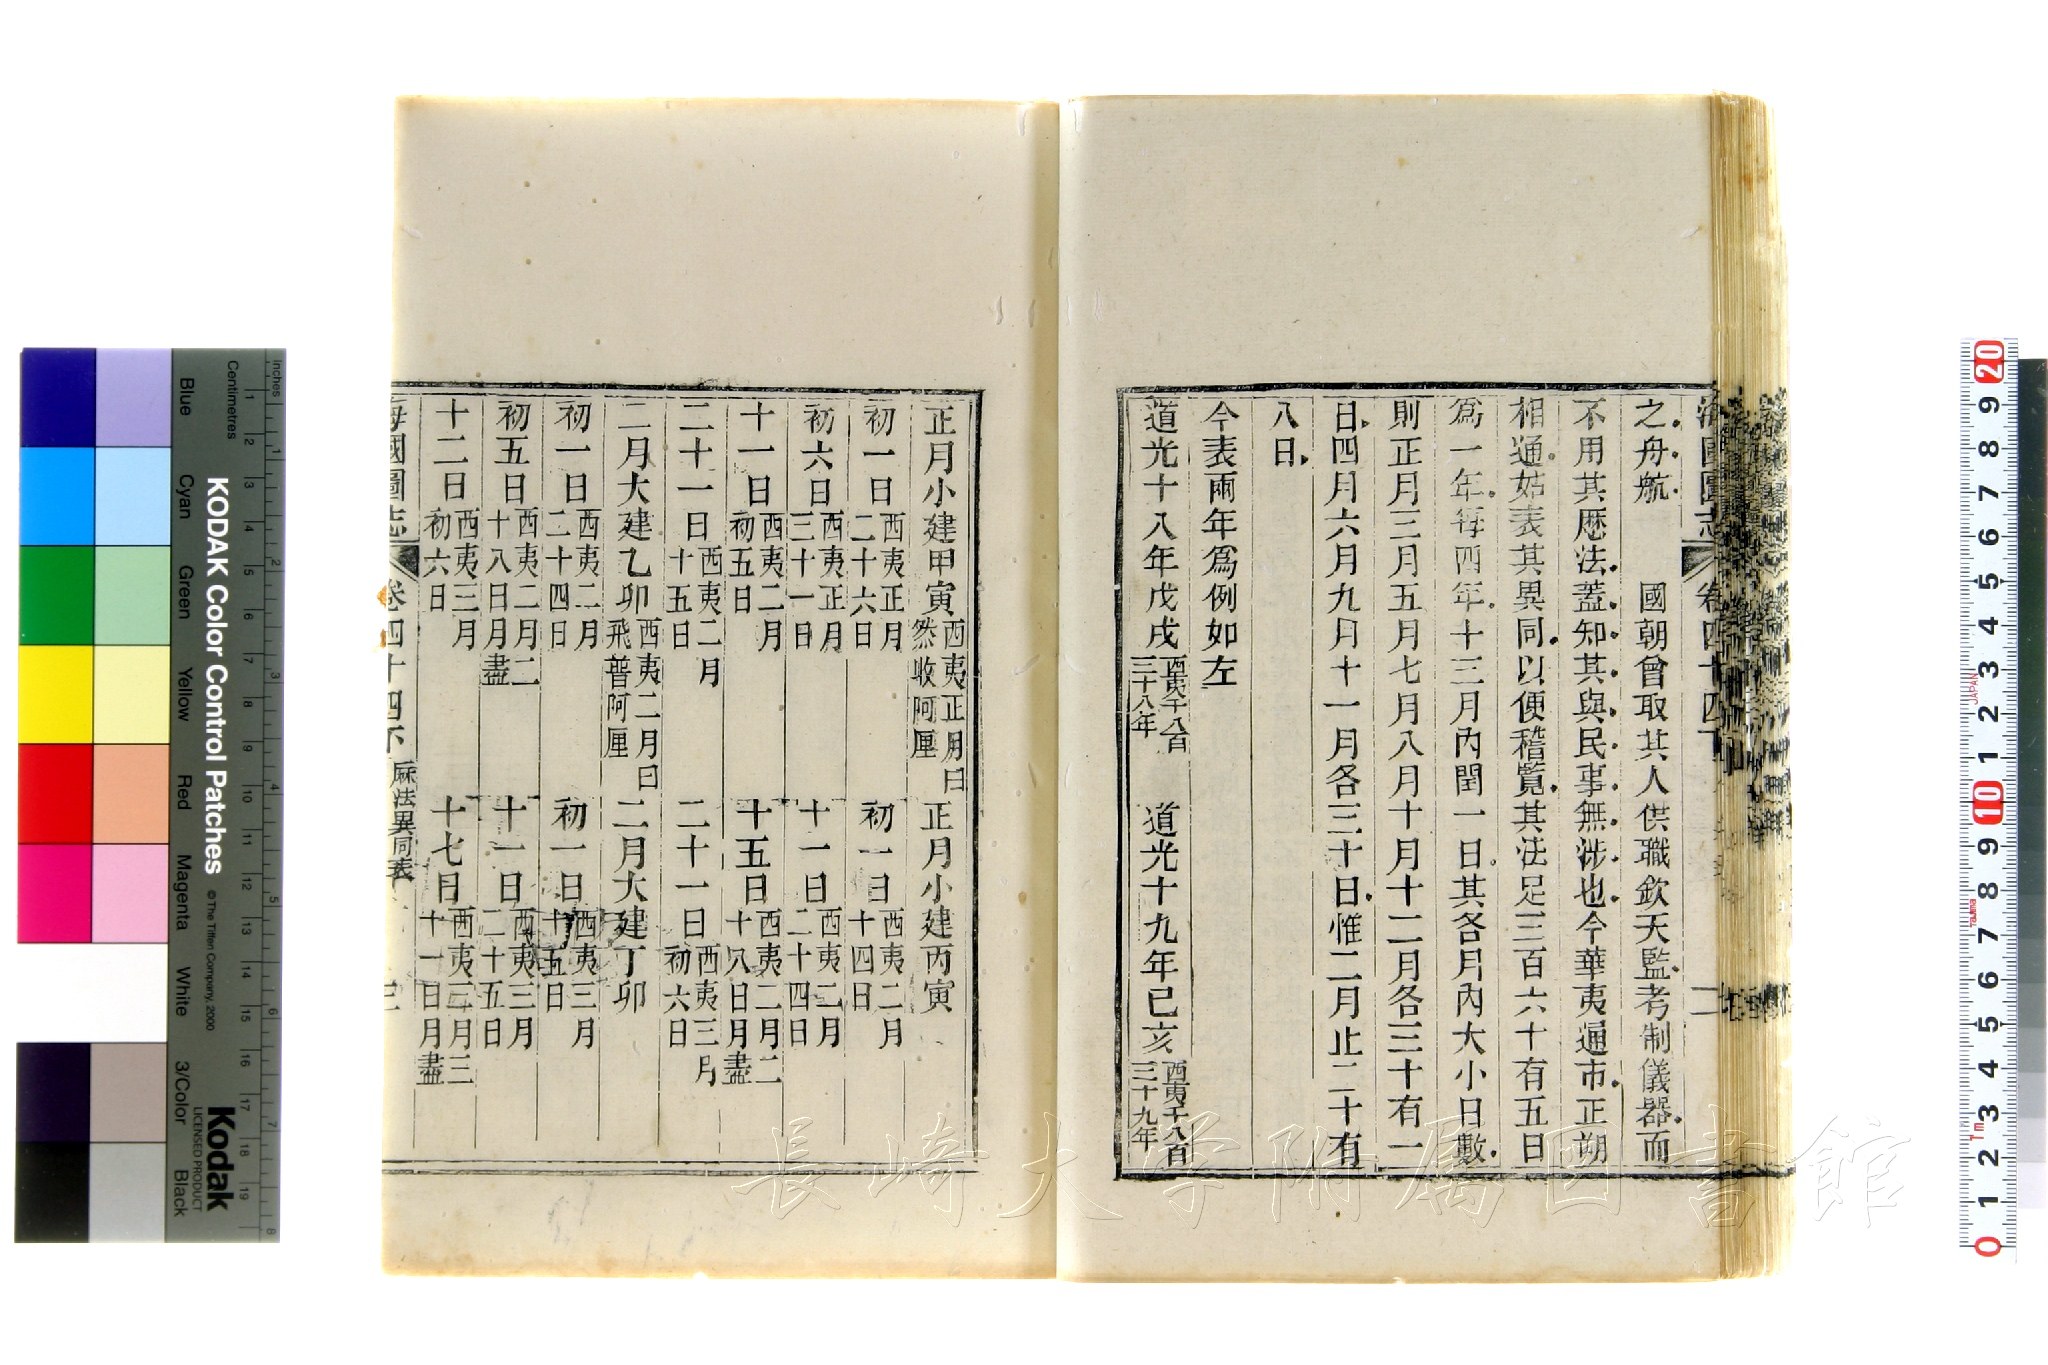 海國圖志
卷四十四下
二
之舟航
國朝曾取其人供職欽天監考制儀器而
不用其厯法蓋知其與民事無涉也今華夷通市正朔
相通姑表其異同以便稽覽其法足三百六十有五日
爲一年每四年十三月內閏一日其各月內大小日數
則正月三月五月七月八月十月十二月各三十有一
日四月六月九月十一月各三十日惟二月止二十有
八日
今表兩年爲例如左
道光十八年戊戌
西夷千八百
三十八年
道光十九年己亥
西夷千八百
三十九年
正月小建甲寅
西夷正月曰
然收阿厘
正月小建丙寅
初一日
西夷正月
二十六日
初一日
西夷二月
十四日
初六日
西夷正月
三十一日
十一日
西夷二月
二十四日
十一日
西夷二月
初五日
十五日
西夷二月二
十八日月盡
二十一日
西夷二月
十五日
二十一日
西夷三月
初六日
二月大建乙卯
西夷二月曰
飛普阿厘
二月大建丁卯
初一日
西夷二月
二十四日
初一日
西夷三月
十五日
初五日
西夷二月二
十八日月盡
十一日
西夷三月
二十五日
十二日
西夷三月
初六日
十七日
西夷三月三
十一日月盡
海國圖志
卷四十四下
厤法異同表
三
長崎大学附属図書館
Inches
Centimetres
KODAK Color Control Patches
© The Tiffen Company, 2000
Kodak
LICENSED PRODUCT
Blue
Cyan
Green
Yellow
Red
Magenta
White
3/Color
Black
1 2 3 4 5 6 7 8 9 10 11 12 13 14 15 16 17 18 19
1 2 3 4 5 6 7 8
0 1 2 3 4 5 6 7 8 9 10 1 2 3 4 5 6 7 8 9 20
JAPAN